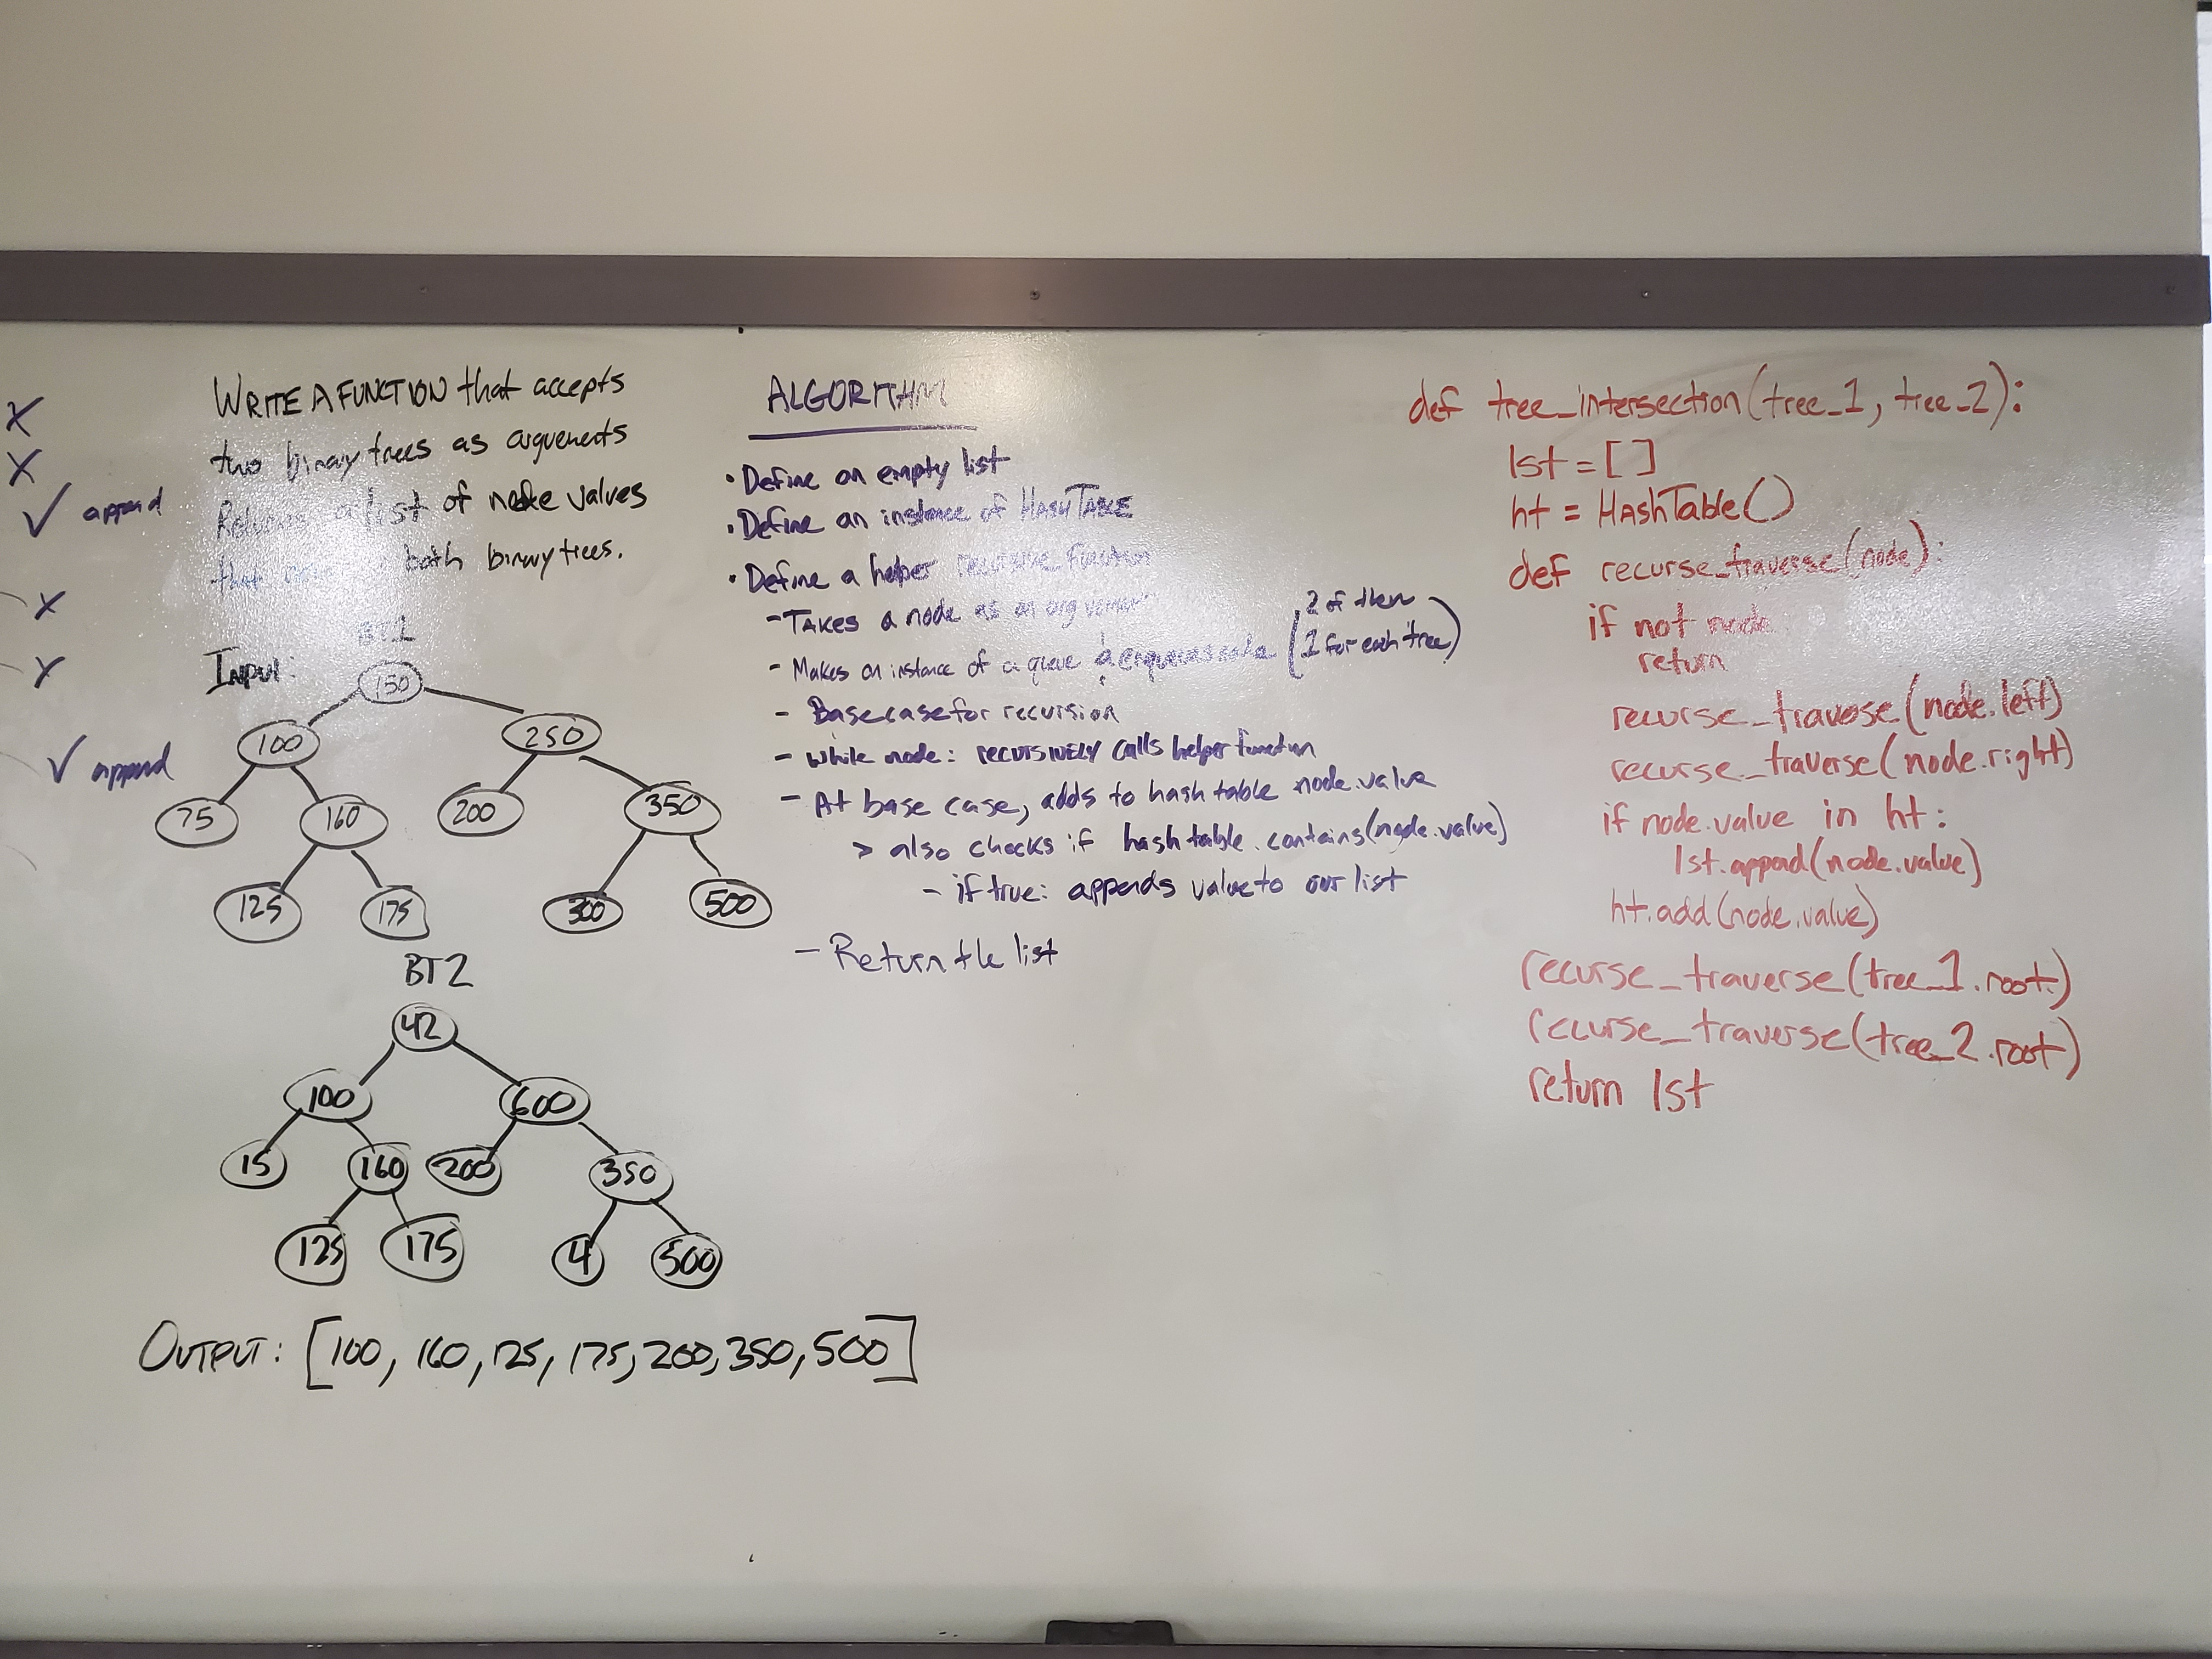 X
X
✓ append
X
X
✓ append
WRITE A FUNCTION that accepts
two binary trees as arguements
Returns a list of node values
that both binary trees.
BT1
INPUT:
150
100 250
75 160 200 350
125 175 300 500
BT2
42
100 600
15 160 200 350
125 175 4 500
OUTPUT: [100, 160, 125, 175, 200, 350, 500]
ALGORITHM
• Define an empty list
• Define an instance of HASHTABLE
• Define a helper recursive function
- TAKES a node as an arguement
- Makes an instance of a queue (2 of them
1 for each tree)
- Base case for recursion
- while node: recursively calls helper function
- At base case, adds to hash table node.value
> also checks if hash table.contains(node.value)
- if true: appends value to our list
- Return the list
def tree_intersection(tree_1, tree_2):
lst = [ ]
ht = HashTable()
def recurse_traverse(node):
if not node
return
recurse_travese(node.left)
recurse_traverse(node.right)
if node.value in ht:
lst.append(node.value)
ht.add(node.value)
recurse_traverse(tree_1.root.)
recurse_traverse(tree_2.root)
return lst